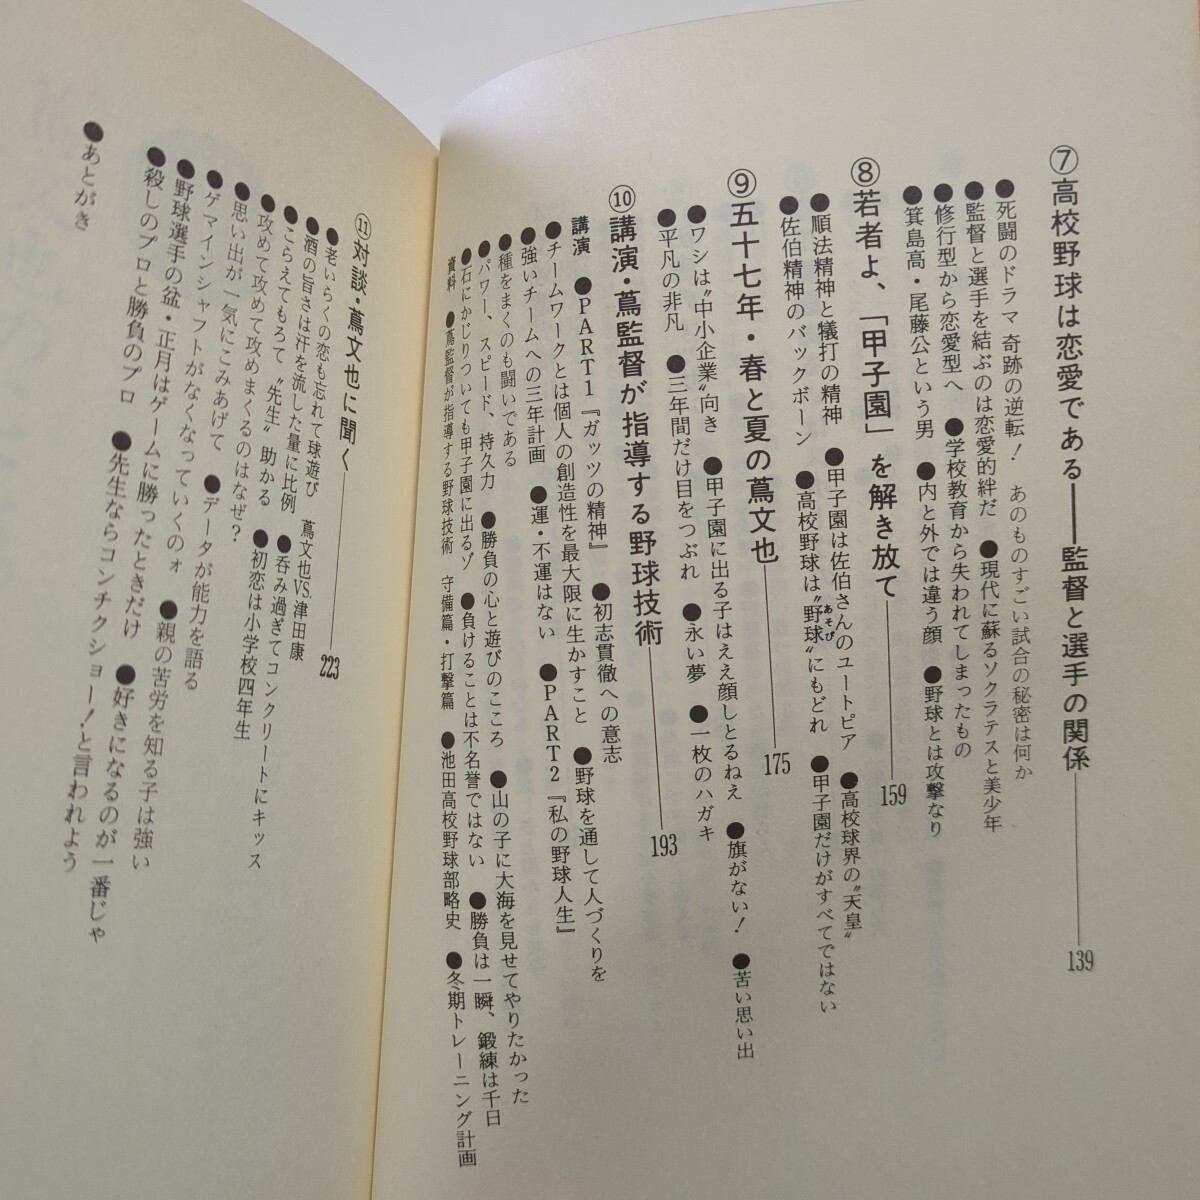 ⑦高校野球は恋愛である——監督と選手の関係——139
●死闘のドラマ 奇跡の逆転！ あのものすごい試合の秘密は何か
●監督と選手を結ぶのは恋愛的絆だ ●現代に蘇るソクラテスと美少年
●修行型から恋愛型へ ●学校教育から失われてしまったもの
●箕島高・尾藤公という男 ●内と外では違う顔 ●野球とは攻撃なり
⑧若者よ、「甲子園」を解き放て——159
●順法精神と犠打の精神 ●甲子園は佐伯さんのユートピア ●高校球界の〝天皇〟
●佐伯精神のバックボーン ●高校野球は〝野球〟にもどれ ●甲子園だけがすべてではない
あそび
⑨五十七年・春と夏の蔦文也——175
●ワシは〝中小企業〟向き ●甲子園に出る子はええ顔しとるねえ ●旗がない！ ●苦い思い出
●平凡の非凡 ●三年間だけ目をつぶれ ●永い夢 ●一枚のハガキ
⑩講演・蔦監督が指導する野球技術——193
講演 ●PART1『ガッツの精神』 ●初志貫徹への意志
●チームワークとは個人の創造性を最大限に生かすこと ●野球を通して人づくりを
●強いチームへの三年計画 ●運・不運はない ●PART2『私の野球人生』
●種をまくのも闘いである
●パワー、スピード、持久力 ●勝負の心と遊びのこころ ●山の子に大海を見せてやりたかった
●石にかじりついても甲子園に出るゾ ●負けることは不名誉ではない ●勝負は一瞬、鍛練は千日
資料 ●蔦監督が指導する野球技術 守備篇・打撃篇 ●池田高校野球部略史 ●冬期トレーニング計画
⑪対談・蔦文也に聞く——223
蔦文也VS.津田康
●老いらくの恋も忘れて球遊び
●酒の旨さは汗を流した量に比例 ●呑み過ぎてコンクリートにキッス
●こらえてもろて〝先生〟助かる ●初恋は小学校四年生
●攻めて攻めて攻めまくるのはなぜ？
●思い出が一気にこみあげて ●データが能力を語る
●ゲマインシャフトがなくなっていくのォ ●親の苦労を知る子は強い
●野球選手の盆・正月はゲームに勝ったときだけ ●好きになるのが一番じゃ
●殺しのプロと勝負のプロ ●先生ならコンチクショー！と言われよう
●あとがき